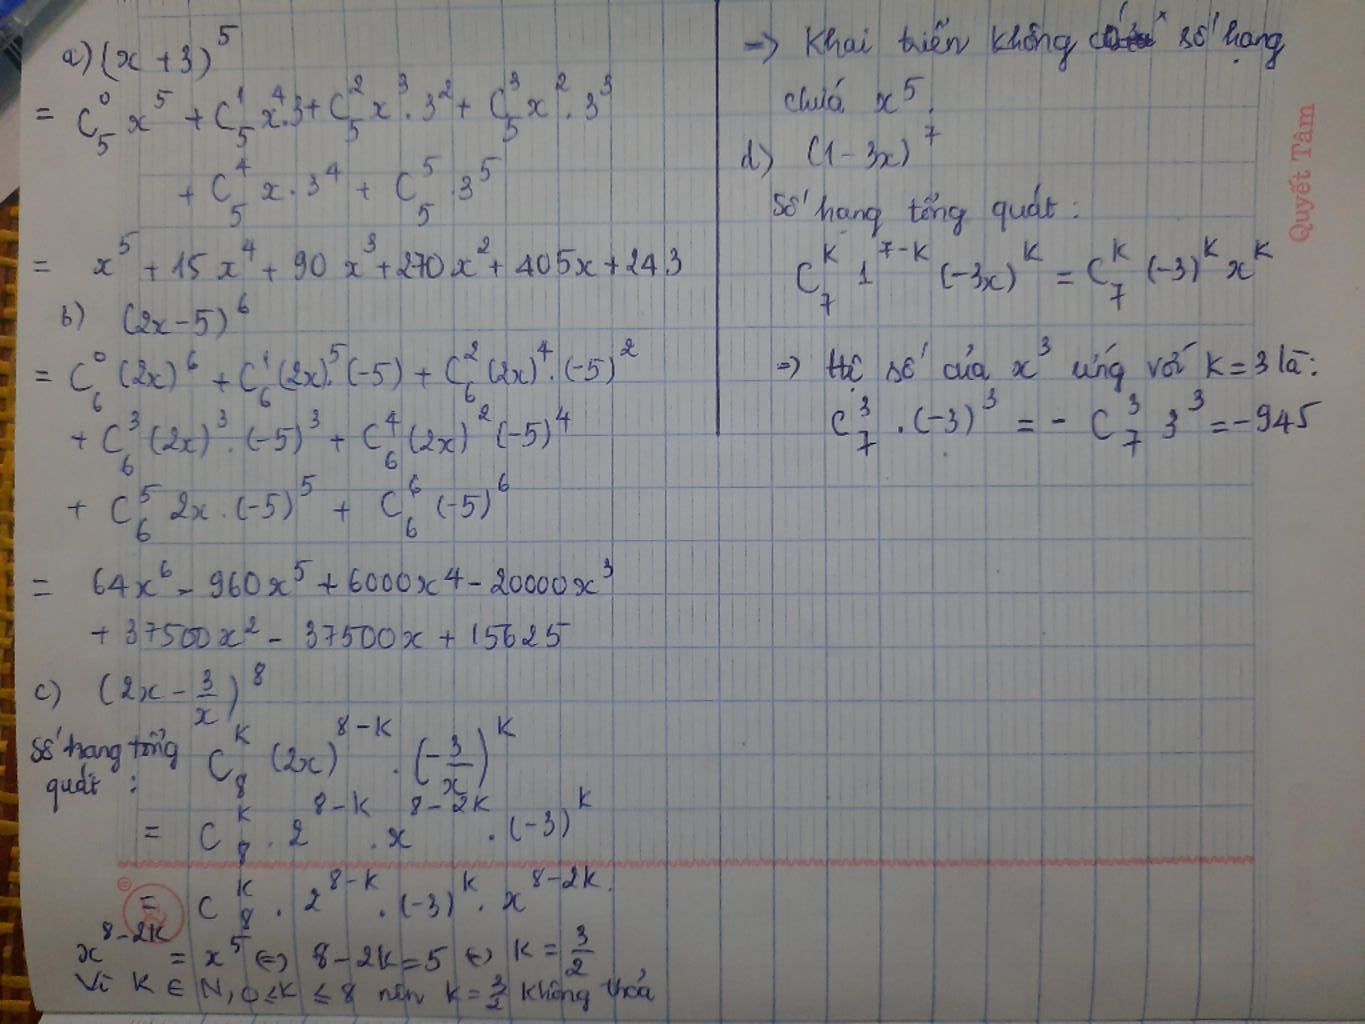 a) (x + 3)^5
= C_5^0 x^5 + C_5^1 x^4.3 + C_5^2 x^3 . 3^2 + C_5^3 x^2 . 3^3
+ C_5^4 x . 3^4 + C_5^5 . 3^5
= x^5 + 15x^4 + 90x^3 + 270x^2 + 405x + 243
b) (2x - 5)^6
= C_6^0 (2x)^6 + C_6^1 (2x)^5 . (-5) + C_6^2 (2x)^4 . (-5)^2
+ C_6^3 (2x)^3 . (-5)^3 + C_6^4 (2x)^2 (-5)^4
+ C_6^5 2x . (-5)^5 + C_6^6 (-5)^6
= 64x^6 - 960x^5 + 6000x^4 - 20000x^3
+ 37500x^2 - 37500x + 15625
c) (2x - 3/x)^8
Số hạng tổng quát : C_8^k (2x)^{8-k} . (-3/x)^k
= C_8^k . 2^{8-k} . x^{8-2k} . (-3)^k
= C_8^k . 2^{8-k} . (-3)^k . x^{8-2k}.
x^{8-2k} = x^5 ⇔ 8 - 2k = 5 ⇔ k = 3/2
Vì k ∈ N, 0 ≤ k ≤ 8 nên k = 3/2 không thỏa
=> Khai triển không số hạng
chứa x^5.
d) (1 - 3x)^7
Số hạng tổng quát :
C_7^k 1^{7-k} (-3x)^k = C_7^k (-3)^k x^k
=> Hệ số của x^3 ứng với k = 3 là :
C_7^3 . (-3)^3 = - C_7^3 3^3 = -945
Quyết Tâm